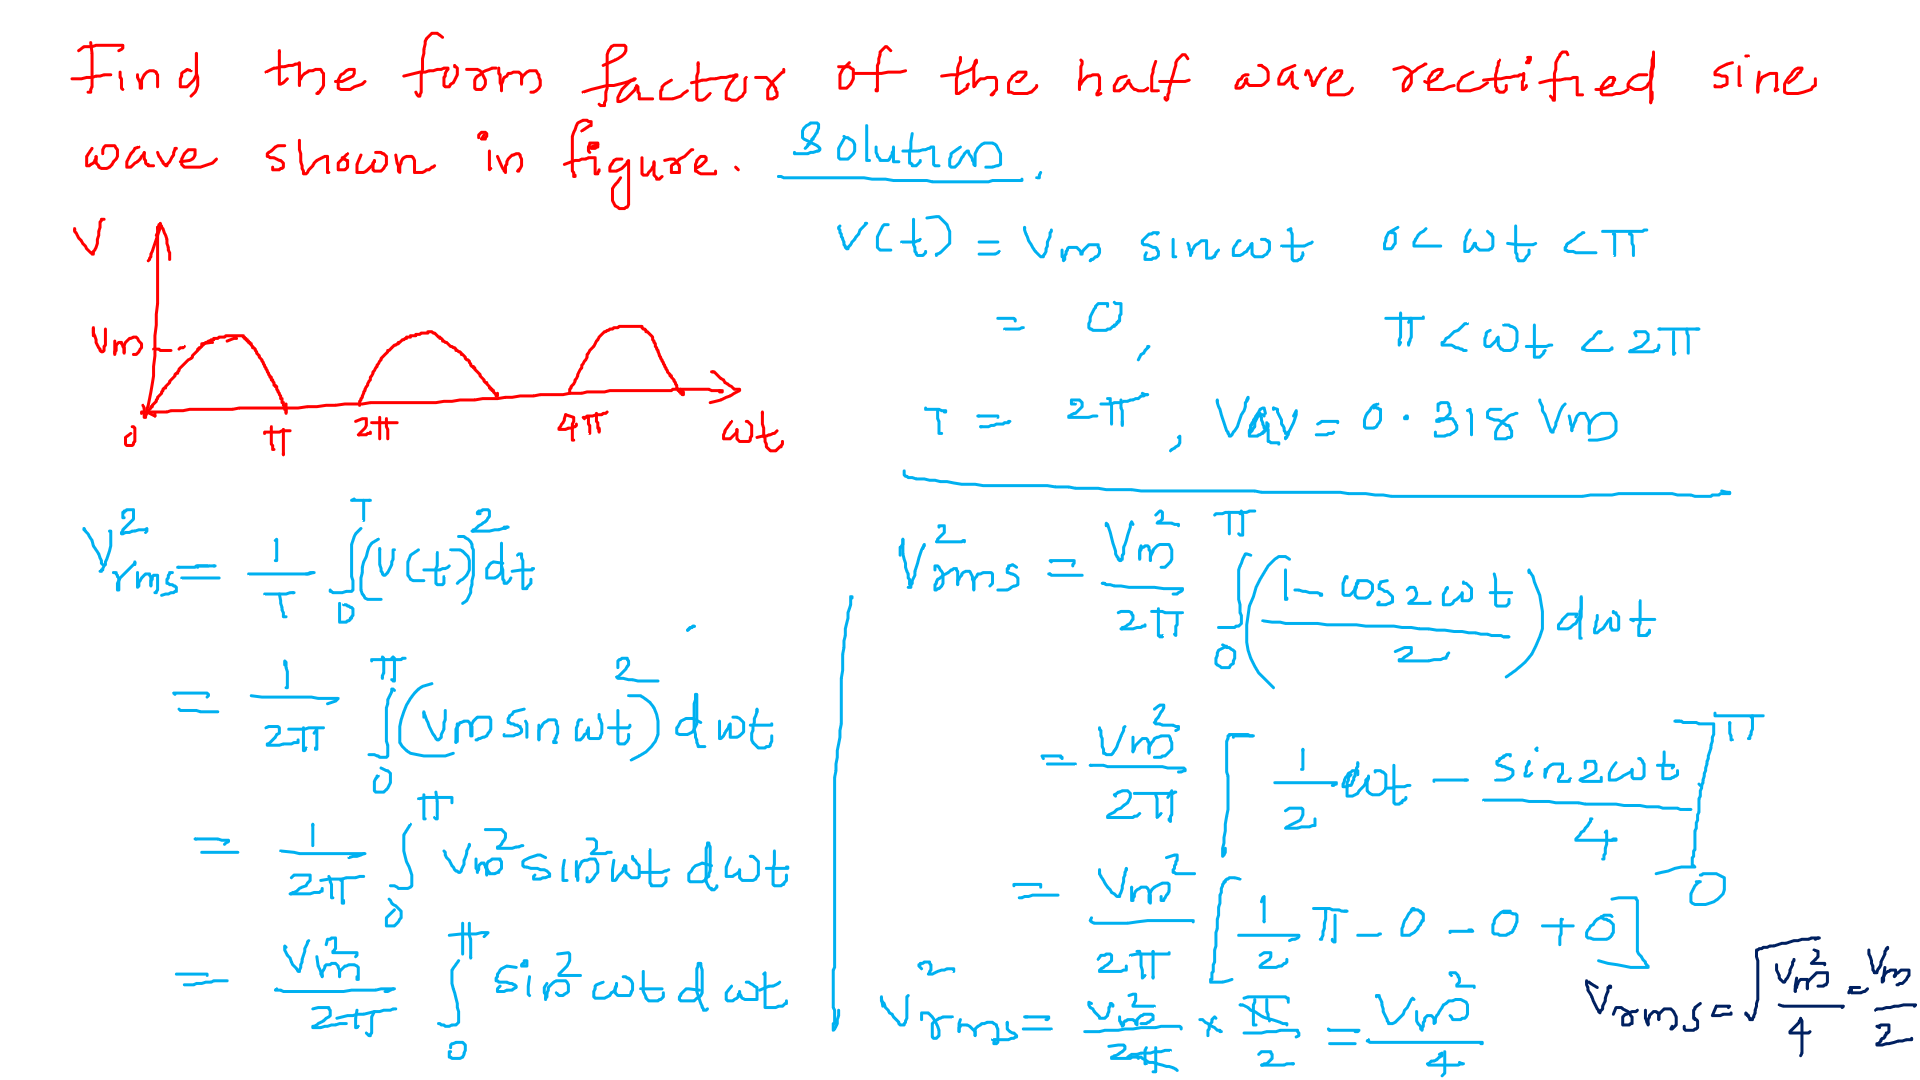 Find the form factor of the half wave rectified sine
wave shown in figure. Solution.
V
Vm
0 π 2π 4π ωt
V(t) = Vm sin ωt 0 < ωt < π
= 0, π < ωt < 2π
T = 2π, Vav = 0.318 Vm
V²rms = 1/T ∫₀ᵀ (V(t))² dt
= 1/2π ∫₀^π (Vm sin ωt)² dωt
= 1/2π ∫₀^π Vm² sin² ωt dωt
= Vm²/2π ∫₀^π sin² ωt dωt
V²rms = Vm²/2π ∫₀^π ((1 - cos 2ωt)/2) dωt
= Vm²/2π [1/2 ωt - sin 2ωt/4]₀^π
= Vm²/2π [1/2 π - 0 - 0 + 0]
V²rms = Vm²/2π × π/2 = Vm²/4
Vrms = √(Vm²/4) = Vm/2